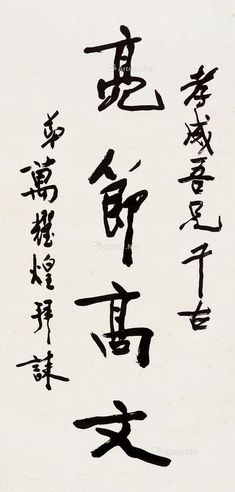 孝威吾兄千古
亮節高文
弟萬耀煌拜誄